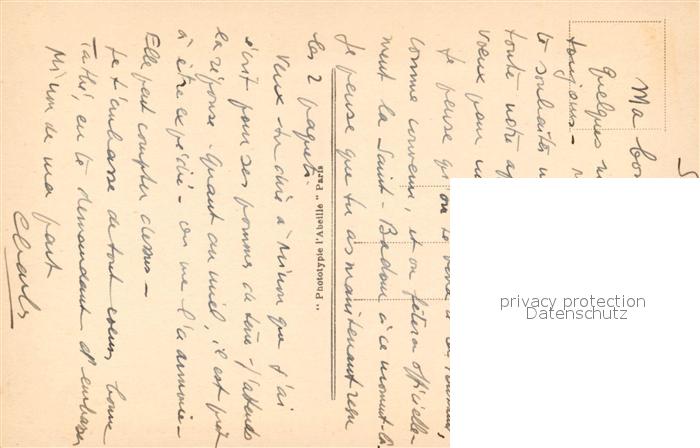 Ma bo
Quelques m
toujours -
te souhaiter u
toute notre a
voeux pour u
Je pense qu on se verra
comme convenu, et on fêtera officielle-
ment la Saint-Badou à ce moment-là
Je pense que tu as maintenant reçu
les 2 paquets.
Veux-tu dire à Mimon que j'ai
écrit pour ses pommes de terre - J'attends
la réponse - Quant au miel, il est prêt
à être expédié - on me l'a annoncé -
Elle peut compter dessus -
Je t'embrasse de tout coeur, bonne
Tathé, en te demandant d'embrasser
Mimon de ma part
Charles
" Phototypie l'Abeille " Paris
privacy protection
Datenschutz